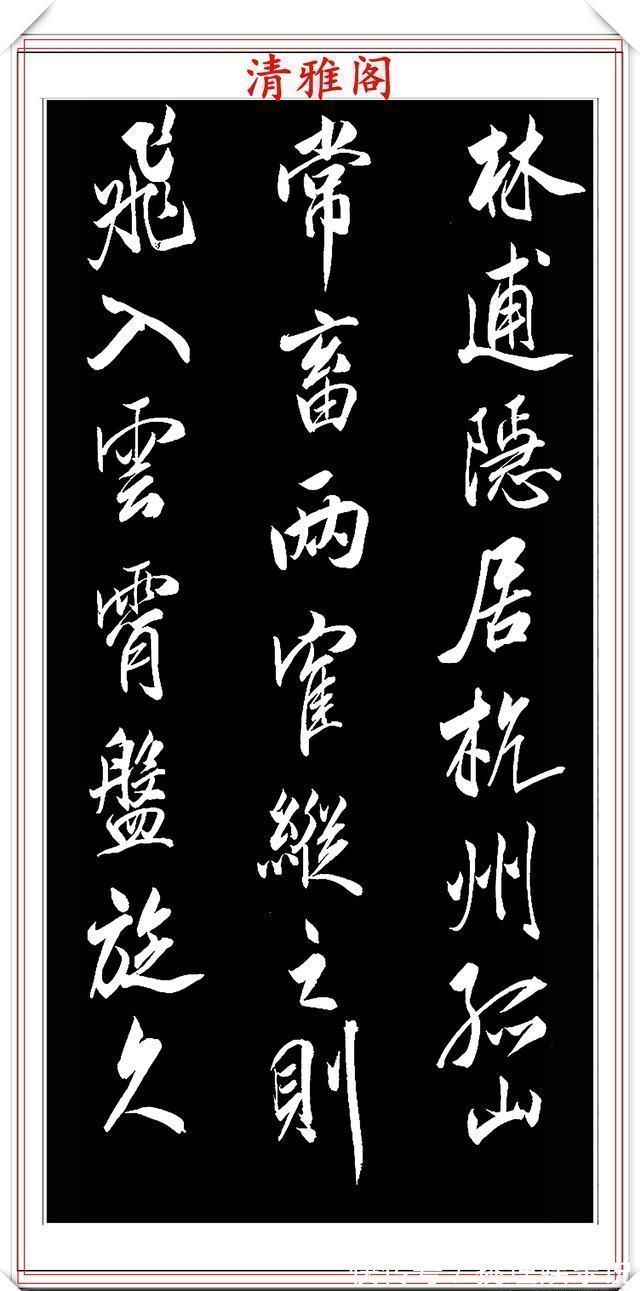 清雅阁
林逋隱居杭州孤山
常畜两寉縱之則
飛入雲霄盤旋久